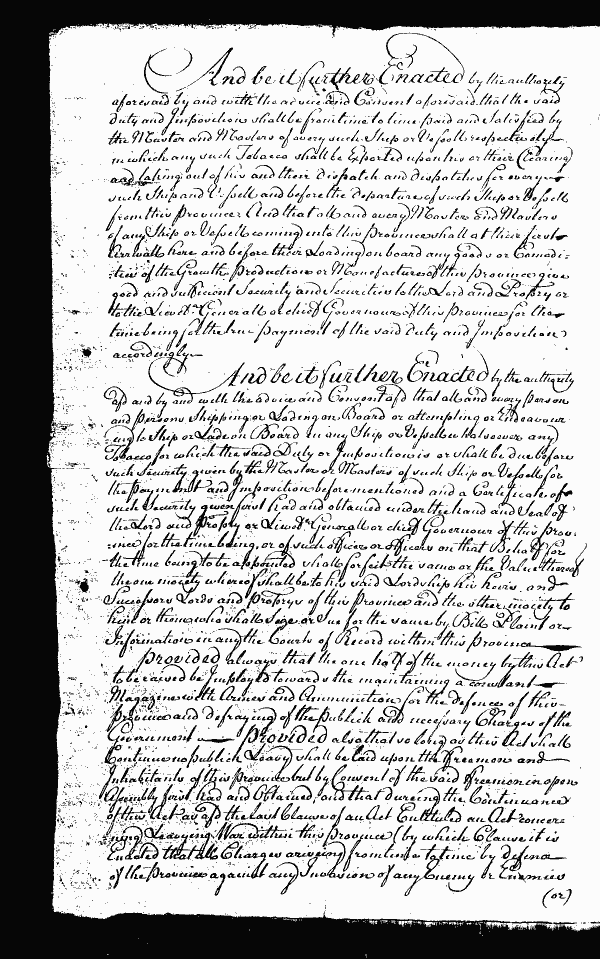 And be it further Enacted by the authority
aforesaid by and with the advice and Consent aforesaid that the said
duty and Imposition shall be from time to time paid and satisfied by
the Master and Masters of every such Ship or Vessell respectively
in which any such Tobacco shall be Exported upon his or their Clearing
and taking out of his and their dispatch and dispatches for every
such Ship and Vessell and before the departure of such Ship or Vessell
from this Province And that all and every Master and Masters
of any Ship or Vessell coming into this Province shall at their first
Arrivall here and before their Loading on board any goods or Comodi-
ties of the Growth Production or Manufacture of this Province give
good and sufficient Security and Securities to the Lord and Propry or
to the Lieut. Generall or chief Governour of this Province for the
time being for the true payment of the said Duty and Imposition
accordingly
And be it further Enacted by the authority
afd and by and with the advice and Consent afd that all and every person
and persons Shipping or Lading on Board or attempting or Endeavour
ing to Ship or Lade on Board in any Ship or Vessell whatsoever any
Tobacco for which the said Duty or Imposition is or shall be due before
such Security given by the Master or Masters of such Ship or Vessell for
the payment and Imposition before mentioned and a Certificate of
such Security given first had and obtained under the hand and Seal of
the Lord and Propry or Lieut. Generall or chief Governour of this Prov-
ince for the time being, or of such officer or officers on that Behalf for
the time being to be appointed shall forfeit the same or the Value thereof
the one moiety whereof shall be to his said Lordship his heirs and
Successors Lords and Proprys of this Province and the other moiety to
him or them who shall Seize or Sue for the same by Bill Plaint or
Information in any the Courts of Record within this Province
Provided always that the one half of the money by this Act
to be raised be Imployed towards the maintaining a constant
Magazine with Armes and Ammunition for the defence of this
Province and defraying of the publick and necessary Charges of the
Government Provided also that so long as this Act shall
Continue no publick Leavy shall be laid upon the freemen and
Inhabitants of this Province but by Consent of the said freemen in open
Assembly first had and Obtained, and that dureing the Continuance
of this Act as afd the last Clause of an Act Entituled an Act concer-
ning Leavying War within this Province (by which Clause it is
Enacted that all Charges ariseing from time to time by defence
of the Province against any Invasion of any Enemy or Enemies
(or)